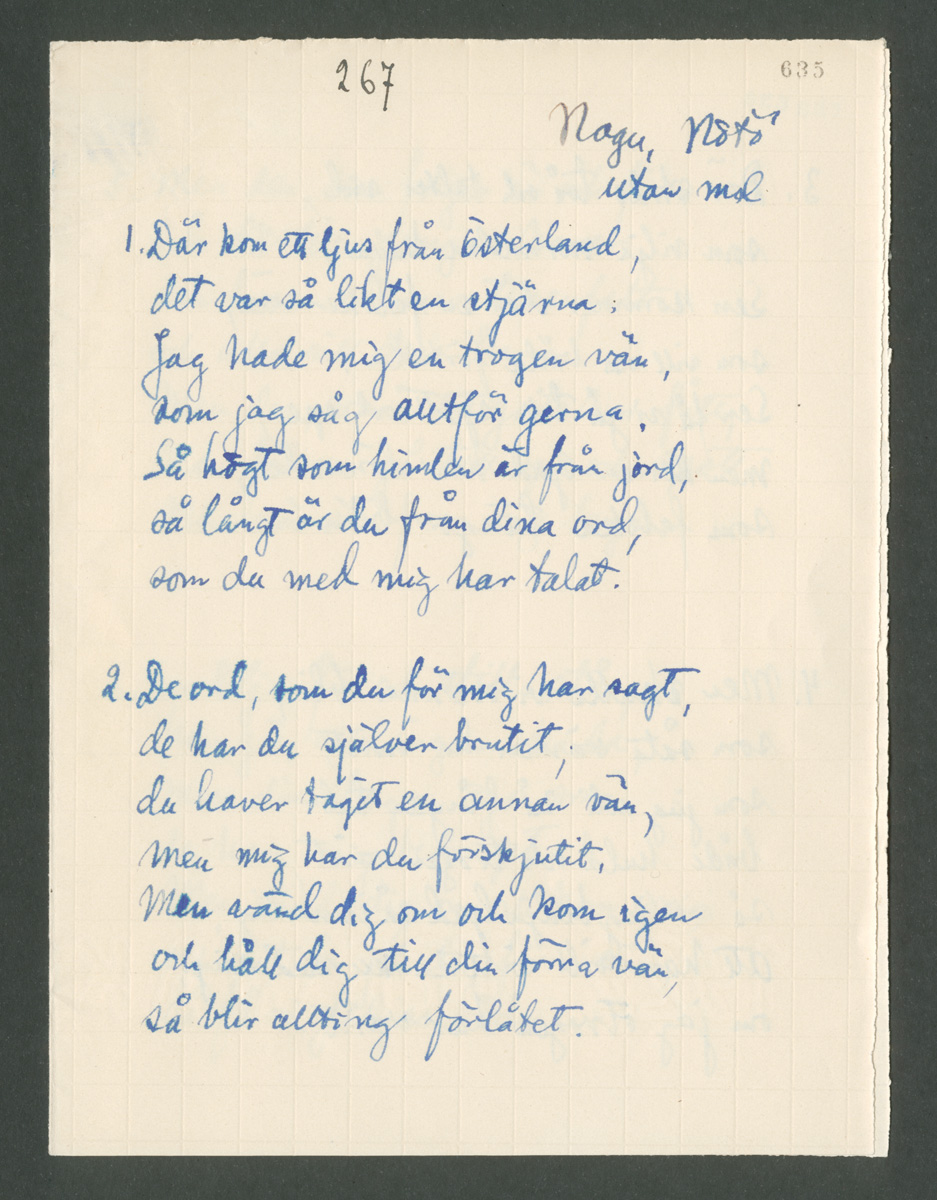 267
635
Nagu, Nötö
utan mel
1. Där kom ett ljus från Österland,
det var så likt en stjärna.
Jag hade mig en trogen vän,
som jag såg alltför gerna.
Så högt som himlen är från jord,
så långt är du från dina ord,
som du med mig har talat.
2. De ord, som du för mig har sagt,
de har du själver brutit,
du haver tagit en annan vän,
men mig har du förskjutit.
Men vänd dig om och kom igen
och håll dig till din förra vän,
så blir allting förlåtet.